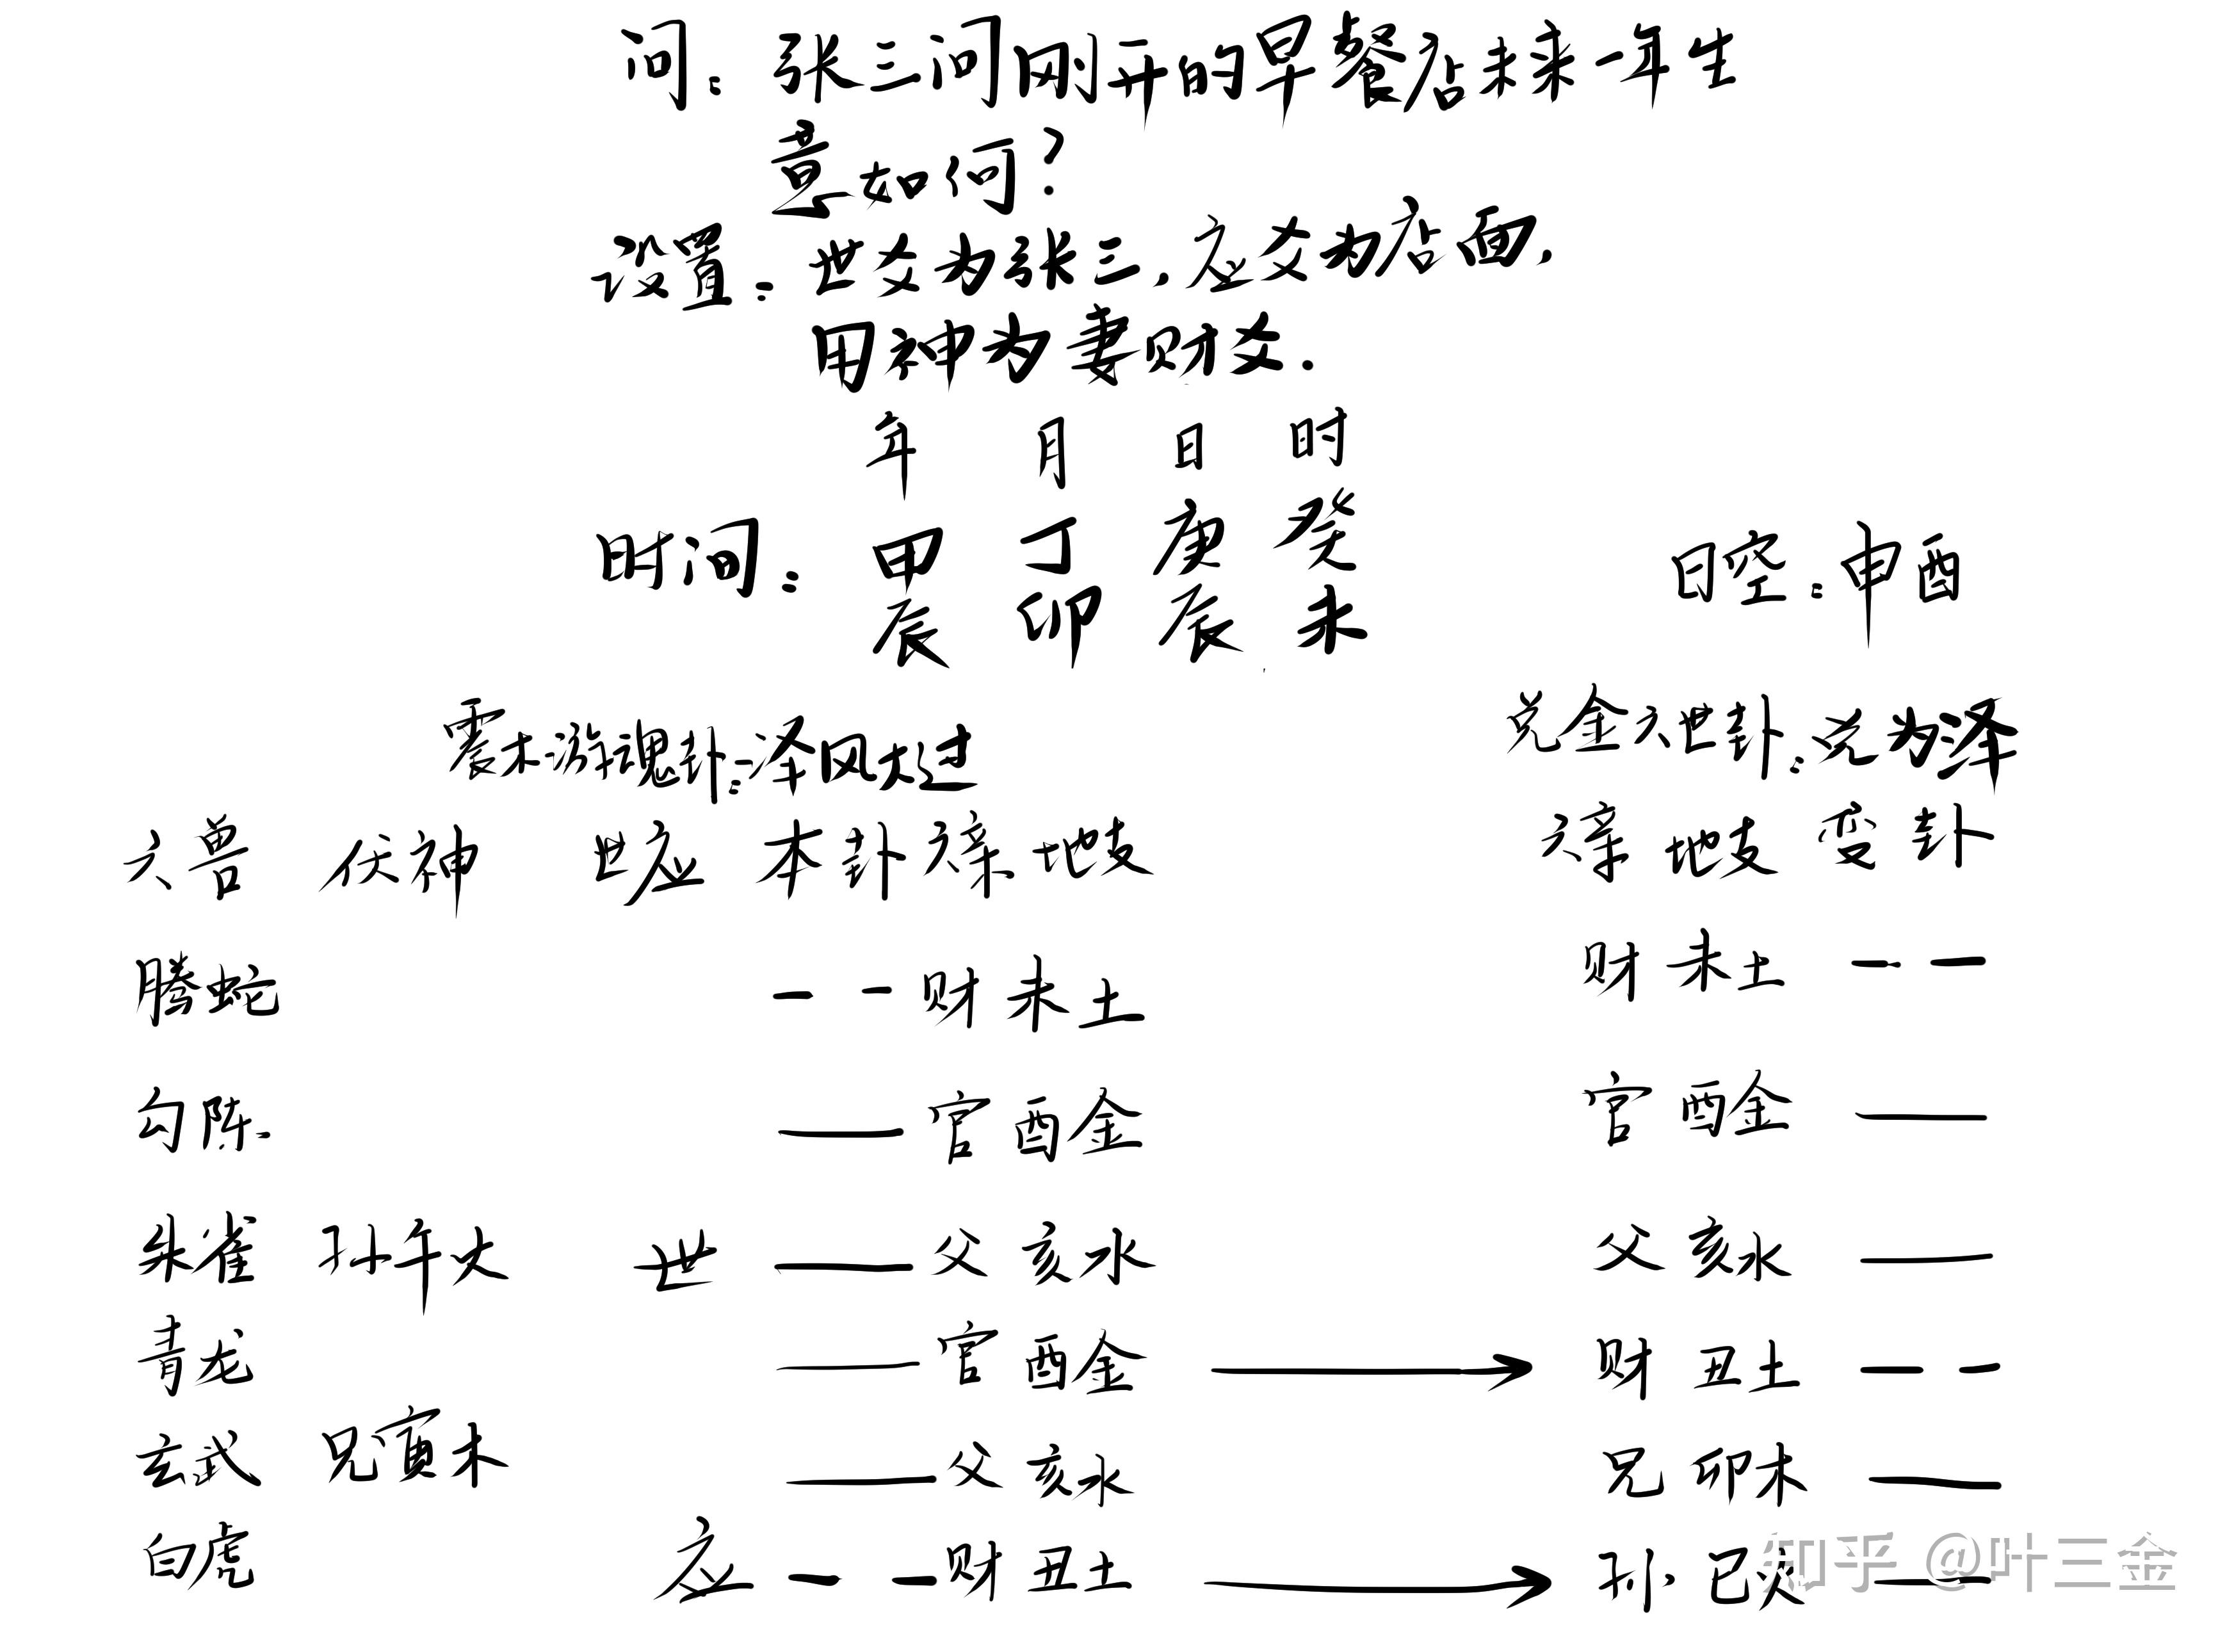 问：张三问刚开的早餐店未来一年生
意如何？
设置：世爻为张三，应爻为店面，
用神为妻财爻.
年 月 日 时
时间： 甲 丁 庚 癸
辰 卯 辰 未
日空：申酉
震木游魂卦：泽风大过 兑金六世卦：兑为泽
六兽 伏神 世应 本卦 六亲 地支 六亲 地支 变卦
腾蛇 财 未 土 财 未 土
勾陈 官 酉 金 官 酉 金
朱雀 孙午火 世 父 亥 水 父 亥 水
青龙 官 酉 金 财 丑 土
玄武 兄寅木 父 亥 水 兄 卯 木
白虎 应 财 丑 土 孙 巳 火
知乎 @叶三金